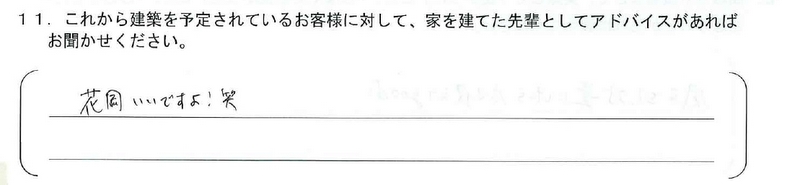 １１．これから建築を予定されているお客様に対して、家を建てた先輩としてアドバイスがあれば
お聞かせください。
花岡いいですよ！笑